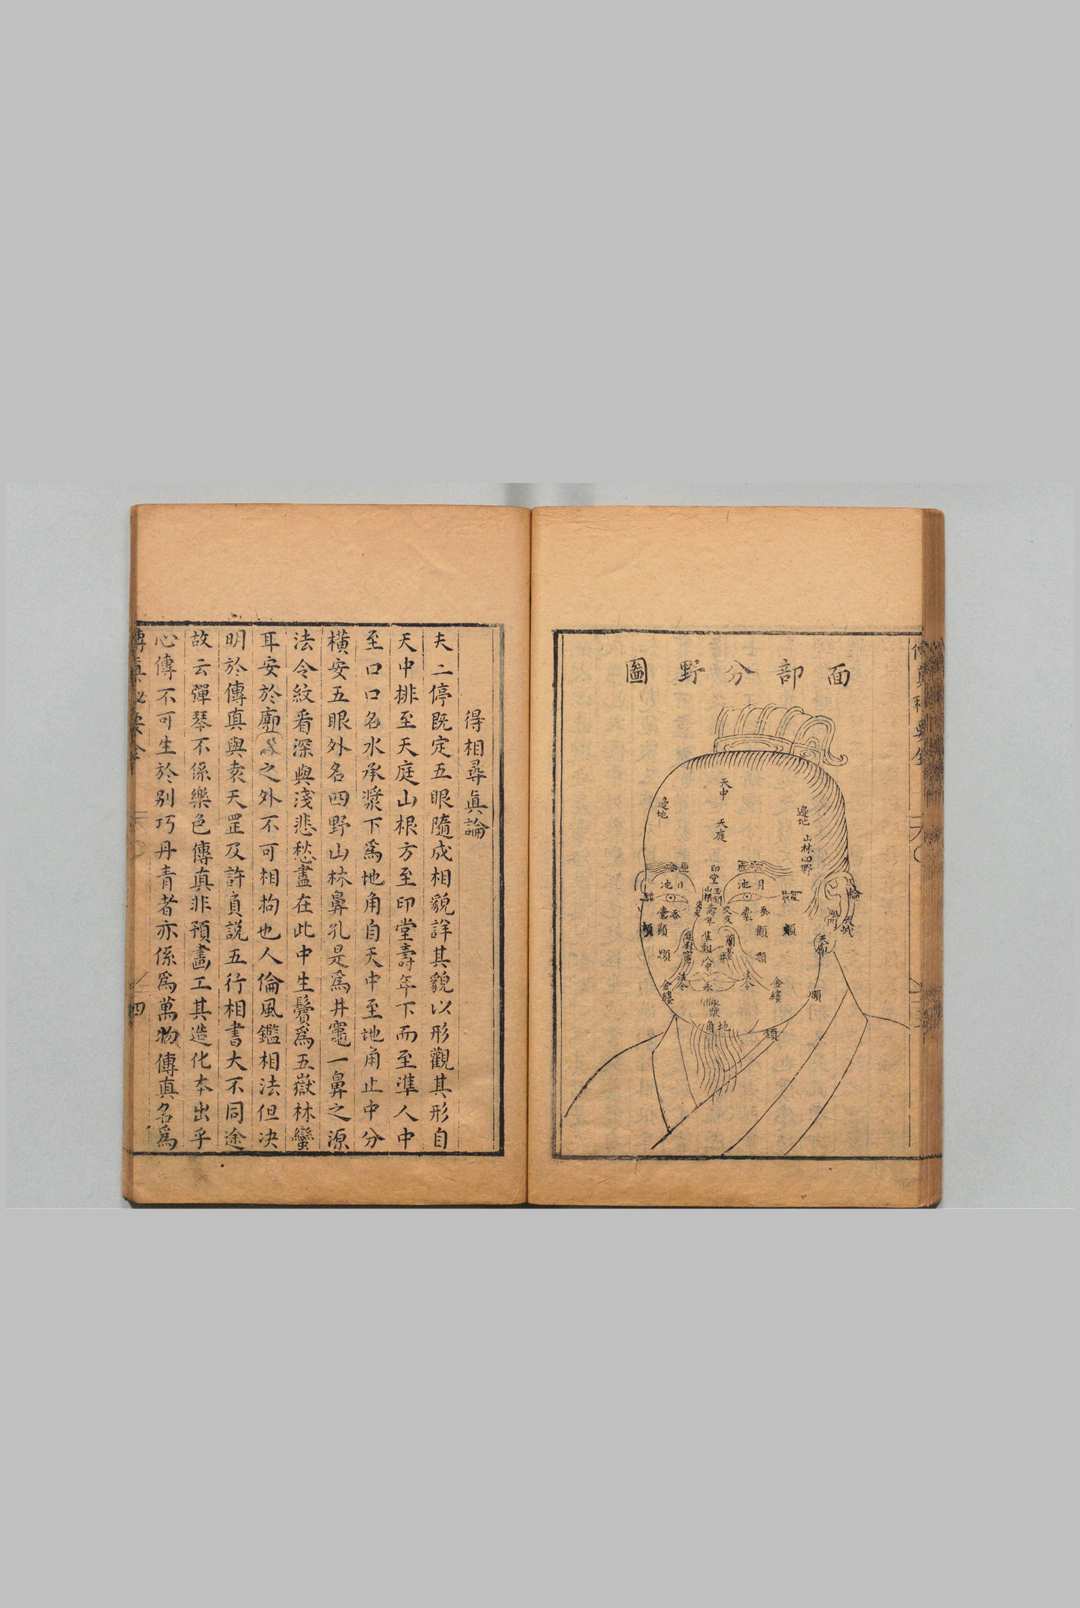 面部分野圖
天中
天庭
邊地
邊地
山林
四野
印堂
山根
壽年
法令
法令
金縷
金縷
蘭臺
井
人中
水
承漿
地角
顴
顴
頤
頰
輪
得相尋真論
夫二停既定五眼隨成相貌詳其貌以形觀其形自
天中排至天庭山根方至印堂壽年下而至準人中
至口口名水承漿下為地角自天中至地角止中分
橫安五眼外名四野山林鼻孔是為井竈一鼻之源
法令紋看深與淺悲愁盡在此中生鬢為五嶽林蠻
耳安於廟之外不可相拘也人倫風鑑相法但决
明於傳真與袁天罡及許負說五行相書大不同途
故云彈琴不係樂色傳真非預畫工其造化本出乎
心傳不可生於別巧丹青者亦係為萬物傳真名為
四